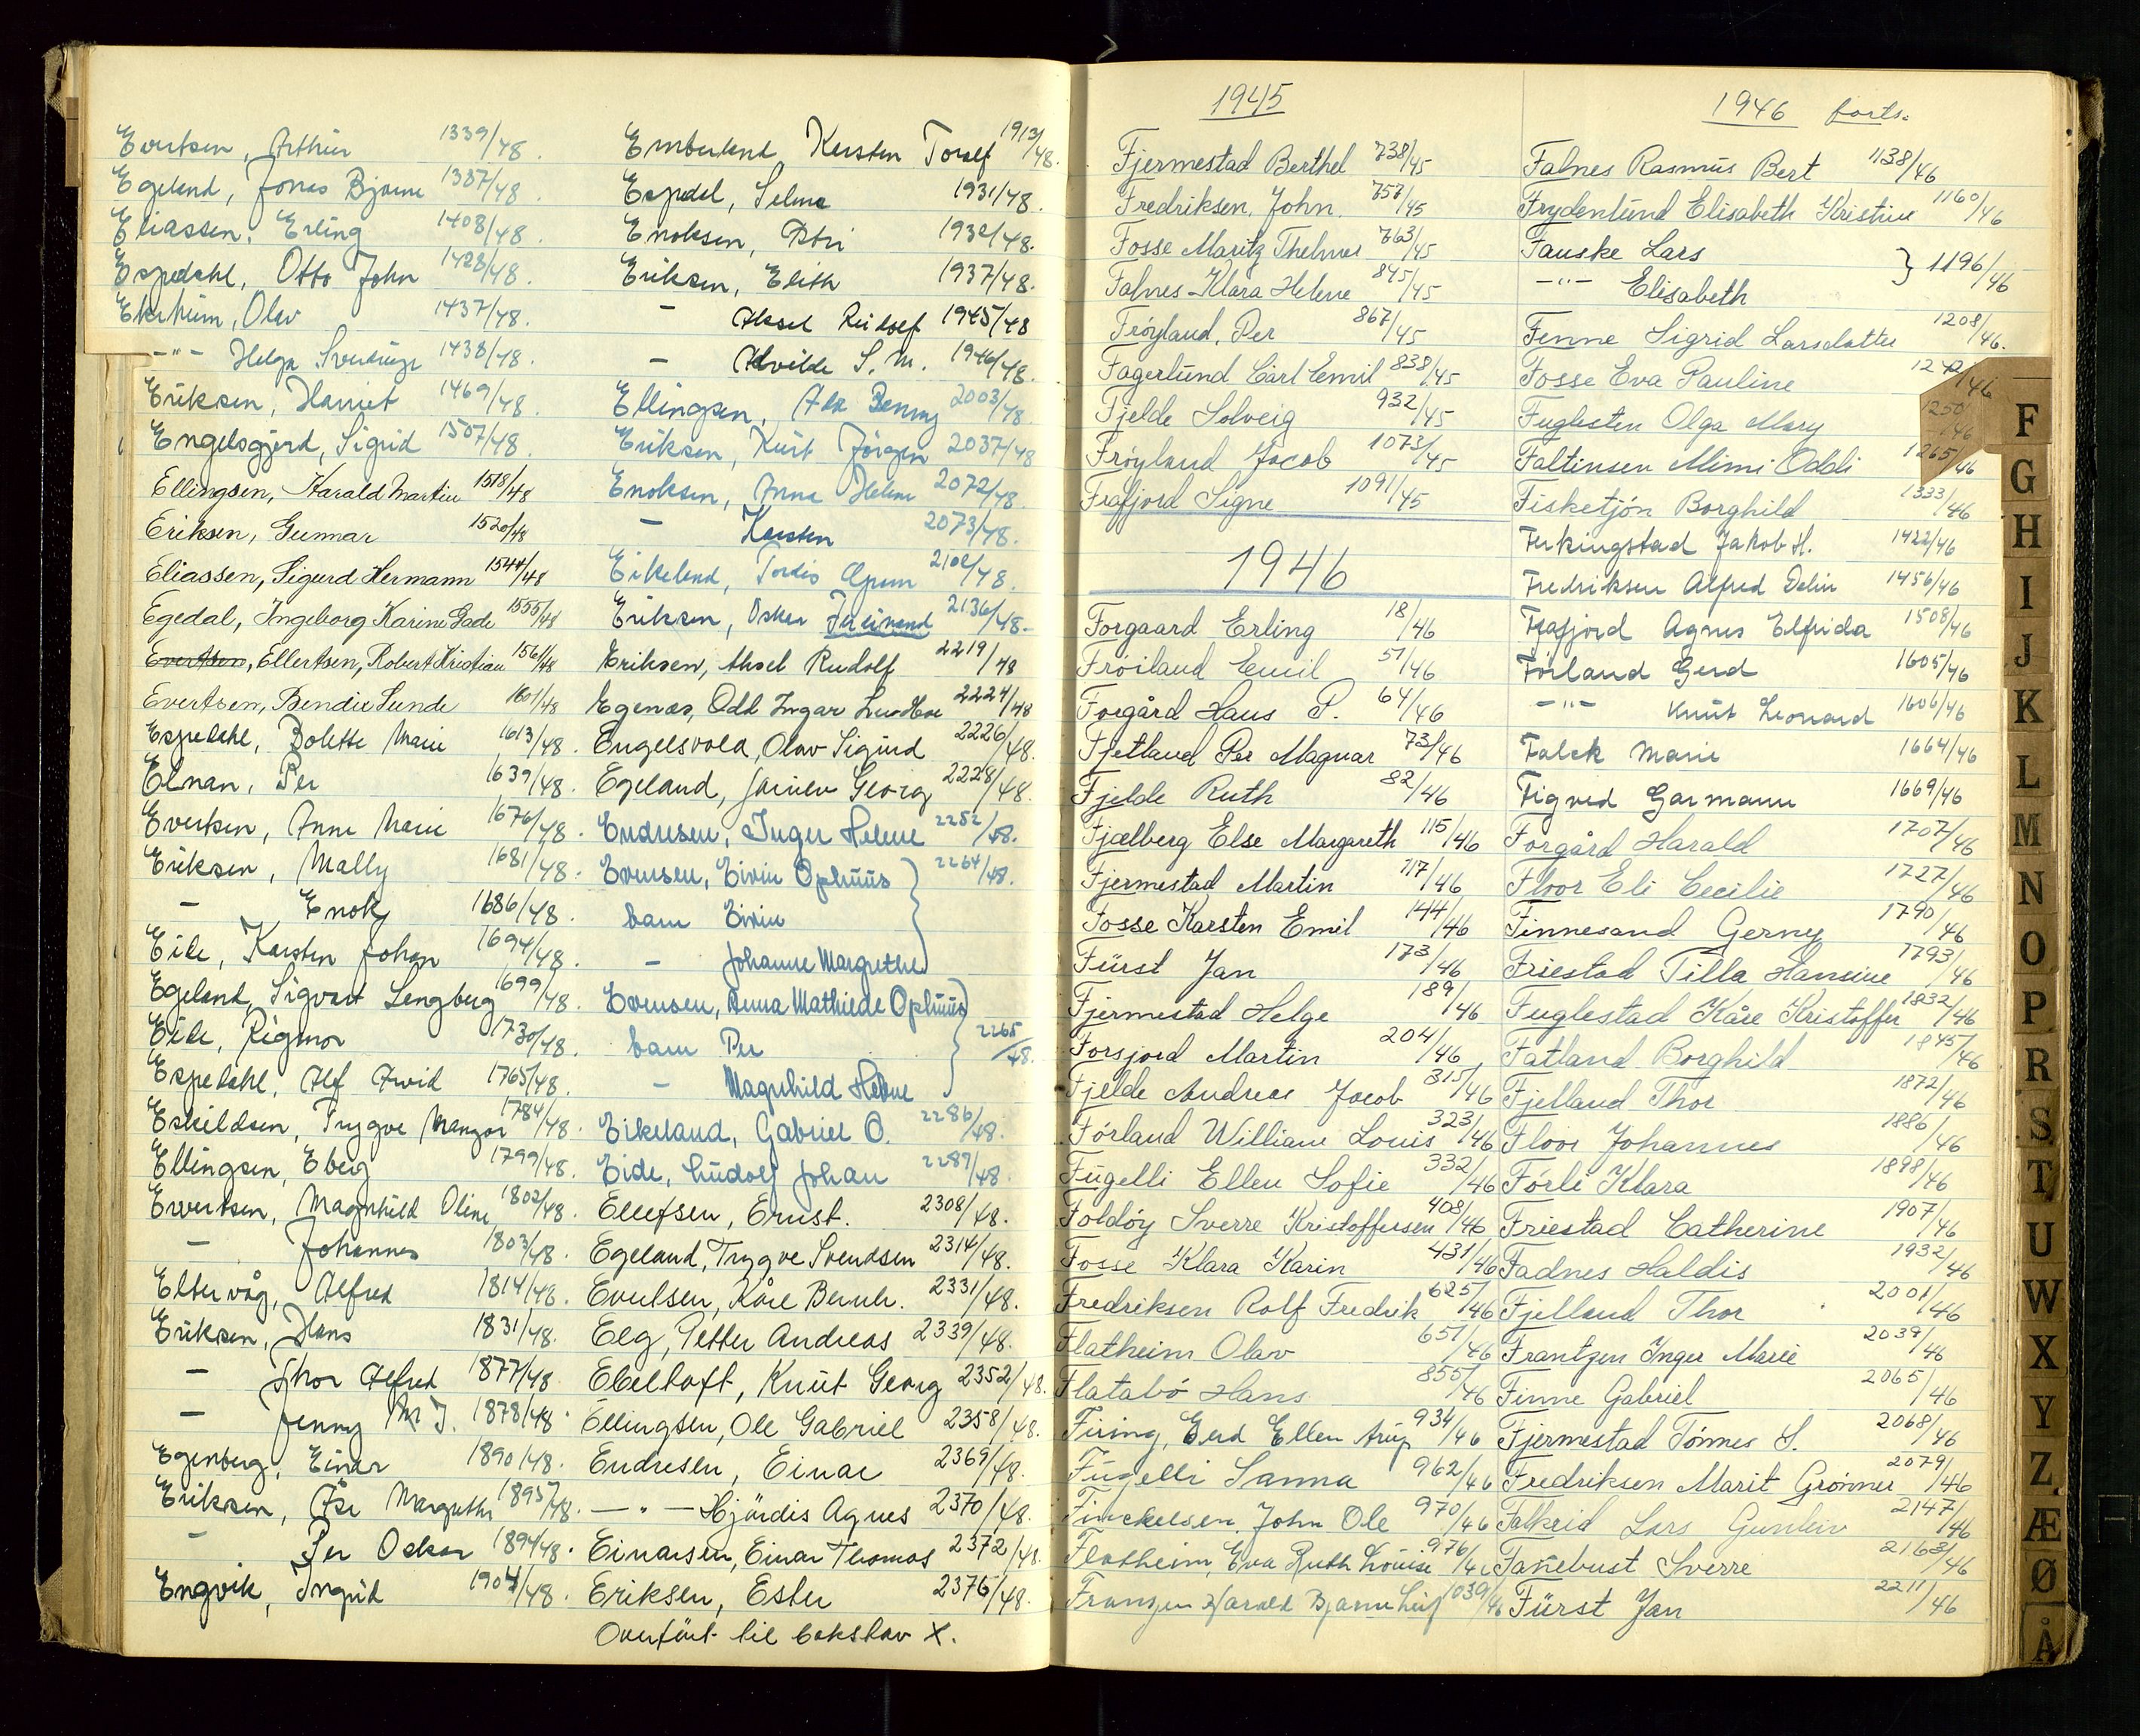 Evertsen, Arthur 1339/48.
Egeland, Jonas Bjarne 1387/48.
Eliassen, Erling 1408/48.
Espedahl, Otto John 1428/48.
Ekrheim, Olav 1437/48.
-"- Helga 1438/48.
Eriksen, Harriet 1469/48.
Engelsgjerd, Sigrid 1507/48.
Ellingsen, Harald Martin 1518/48
Eriksen, Gunnar 1520/48
Eliassen, Sigurd Hermann 1544/48
Egedal, Ingeborg Karine Gade 1555/48
Evertsen, Ellertsen, Robert Kristian 1561/48
Evertsen, Bendix Sunde 1601/48
Espedahl, Bolette Marie 1613/48.
Elnan, Per 1639/48.
Evertsen, Anne Marie 1676/48.
Eriksen, Mally 1681/48.
- Enok 1686/48.
Eide, Karsten Johan 1694/48.
Egeland, Sigvart Lengberg 1699/48.
Eide, Rigmor 1730/48.
Espedahl, Alf Arvid 1765/48.
Eskildsen, Trygve Mangor 1784/48.
Ellingsen, Eberg 1799/48.
Evertsen, Magnhild Oline 1802/48.
- Johannes 1803/48.
Eltervåg, Alfred 1814/48.
Eriksen, Hans 1831/48.
- Thor Alfred 1877/48
- Jenny M J. 1878/48.
Egenberg, Einar 1890/48.
Eriksen, Åse Margrethe 1893/48.
- Per Oskar 1894/48.
Engvik, Ingrid 1904/48.
Emberland Karsten Toralf 1913/48.
Espedal, Selma 1931/48.
Enoksen, Astri 1932/48.
Eriksen, Edith 1937/48.
- Aksel Rudolf 1945/48
- Alvilde S. M. 1946/48.
Ellingsen, Alf Benny 2003/48
Eriksen, Kurt Jörgen 2037/48
Enoksen, Anna Helene 2072/48.
- Karsten 2073/48.
Eikeland, Tordis 2102/48.
Eriksen, Oskar Ferdinand 2136/48.
Eriksen, Aksel Rudolf 2219/48
Egenæs, Odd Ingar 2224/48
Engelsvold, Olav Sigurd 2226/48.
Egeland, Georg 2228/48.
Endresen, Inger Helene 2252/48.
Evensen, Eivin Ophuus } 2264/48.
barn Eivin
- Johanne Margrethe
Evensen, Anna Mathilde Ophuus } 2265/48.
barn Per
- Magnhild Helene
Eikeland, Gabriel O. 2286/48.
Eide, Ludolf Johan 2287/48
Ellefsen, Ernst. 2308/48.
Egeland, Trygve Svendsen 2314/48.
Evertsen, Kåre Bernh. 2331/48.
Elg, Petter Andreas 2339/48.
Ebeltoft, Knut Georg 2352/48.
Ellingsen, Ole Gabriel 2358/48.
Endresen, Einar 2369/48.
-"- Hjördis Agnes 2370/48.
Einarsen, Einar Thomas 2372/48.
Eriksen, Ester 2376/48.
Overført til bokstav X.
1945
Fjermestad Berthel 738/45
Fredriksen, John 757/45
Fosse Maritz Thelmer 763/45
Falnes Klara Helene 845/45
Frøyland, Per 867/45
Fagerlund Carl Emil 838/45
Fjelde Solveig 932/45
Frøyland Jacob 1073/45
Frafjord Signe 1091/45
1946
Forgaard Erling 18/46
Froiland Emil 51/46
Forgård Hans P. 64/46
Fjetland Per Magnar 73/46
Fjelde Ruth 82/46
Fjælberg Else Margareth 115/46
Fjermestad Martin 117/46
Fosse Karsten Emil 144/46
Fürst Jan 173/46
Fjermestad Helge 189/46
Forsjord Martin 204/46
Fjelde Andreas Jacob 315/46
Førland William Louis 323/46
Fugelli Ellen Sofie 332/46
Foldøy Sverre Kristoffersen 408/46
Fosse Klara Karin 431/46
Fredriksen Rolf Fredrik 625/46
Flatheim Olav 651/46
Flatabø Hans 855/46
Firing, Gerd Ellen Arup 934/46
Fugelli Sanna 962/46
Finckelsen, John Ole 970/46
Flatheim, Eva Ruth Louise 976/46
Franzen Harald Bjarne Leif 1039/46
1946 forts.
Falnes Rasmus Bert 1138/46
Frydenlund Elisabeth Kristine 1160/46
Fauske Lars } 1196/46
-"- Elisabeth
Fenne Sigrid Larsdatter 1208/46.
Fosse Eva Pauline 1242/46
Fuglesten Olga Mary 1250/46
Faltinsen Mimi Oddi 1265/46
Fisketjøn Borghild 1333/46
Ferkingstad Jakob H. 1422/46
Fredriksen Alfred Delin 1456/46
Frafjord Agnes Elfrida 1508/46
Førland Gerd 1605/46
-"- Knut Leonard 1606/46
Falck Marie 1664/46
Figved Garmann 1669/46
Forgård Harald 1707/46
Floor Eli Cecilie 1727/46
Finnesand Gerny 1790/46
Friestad Tilla Hansine 1793/46
Fuglestad Kåre Kristoffer 1832/46
Fatland Borghild 1845/46
Fjelland Thor 1872/46
Floor Johannes 1886/46
Førli Klara 1898/46
Friestad Catherine 1907/46
Fadnes Haldis 1932/46
Fjelland Thor 2001/46
Frantzen Inger Marie 2039/46
Finne Gabriel 2065/46
Fjermestad Tønnes S. 2068/46
Fredriksen Marit Grønner 2079/46
Falkeid Lars Gunleiv 2147/46
Fanebust Sverre 2163/46
Fürst Jan 2211/46
F
G
H
I
J
K
L
M
N
O
P
R
S
T
U
W
X
Y
Z
Æ
Ø
Å